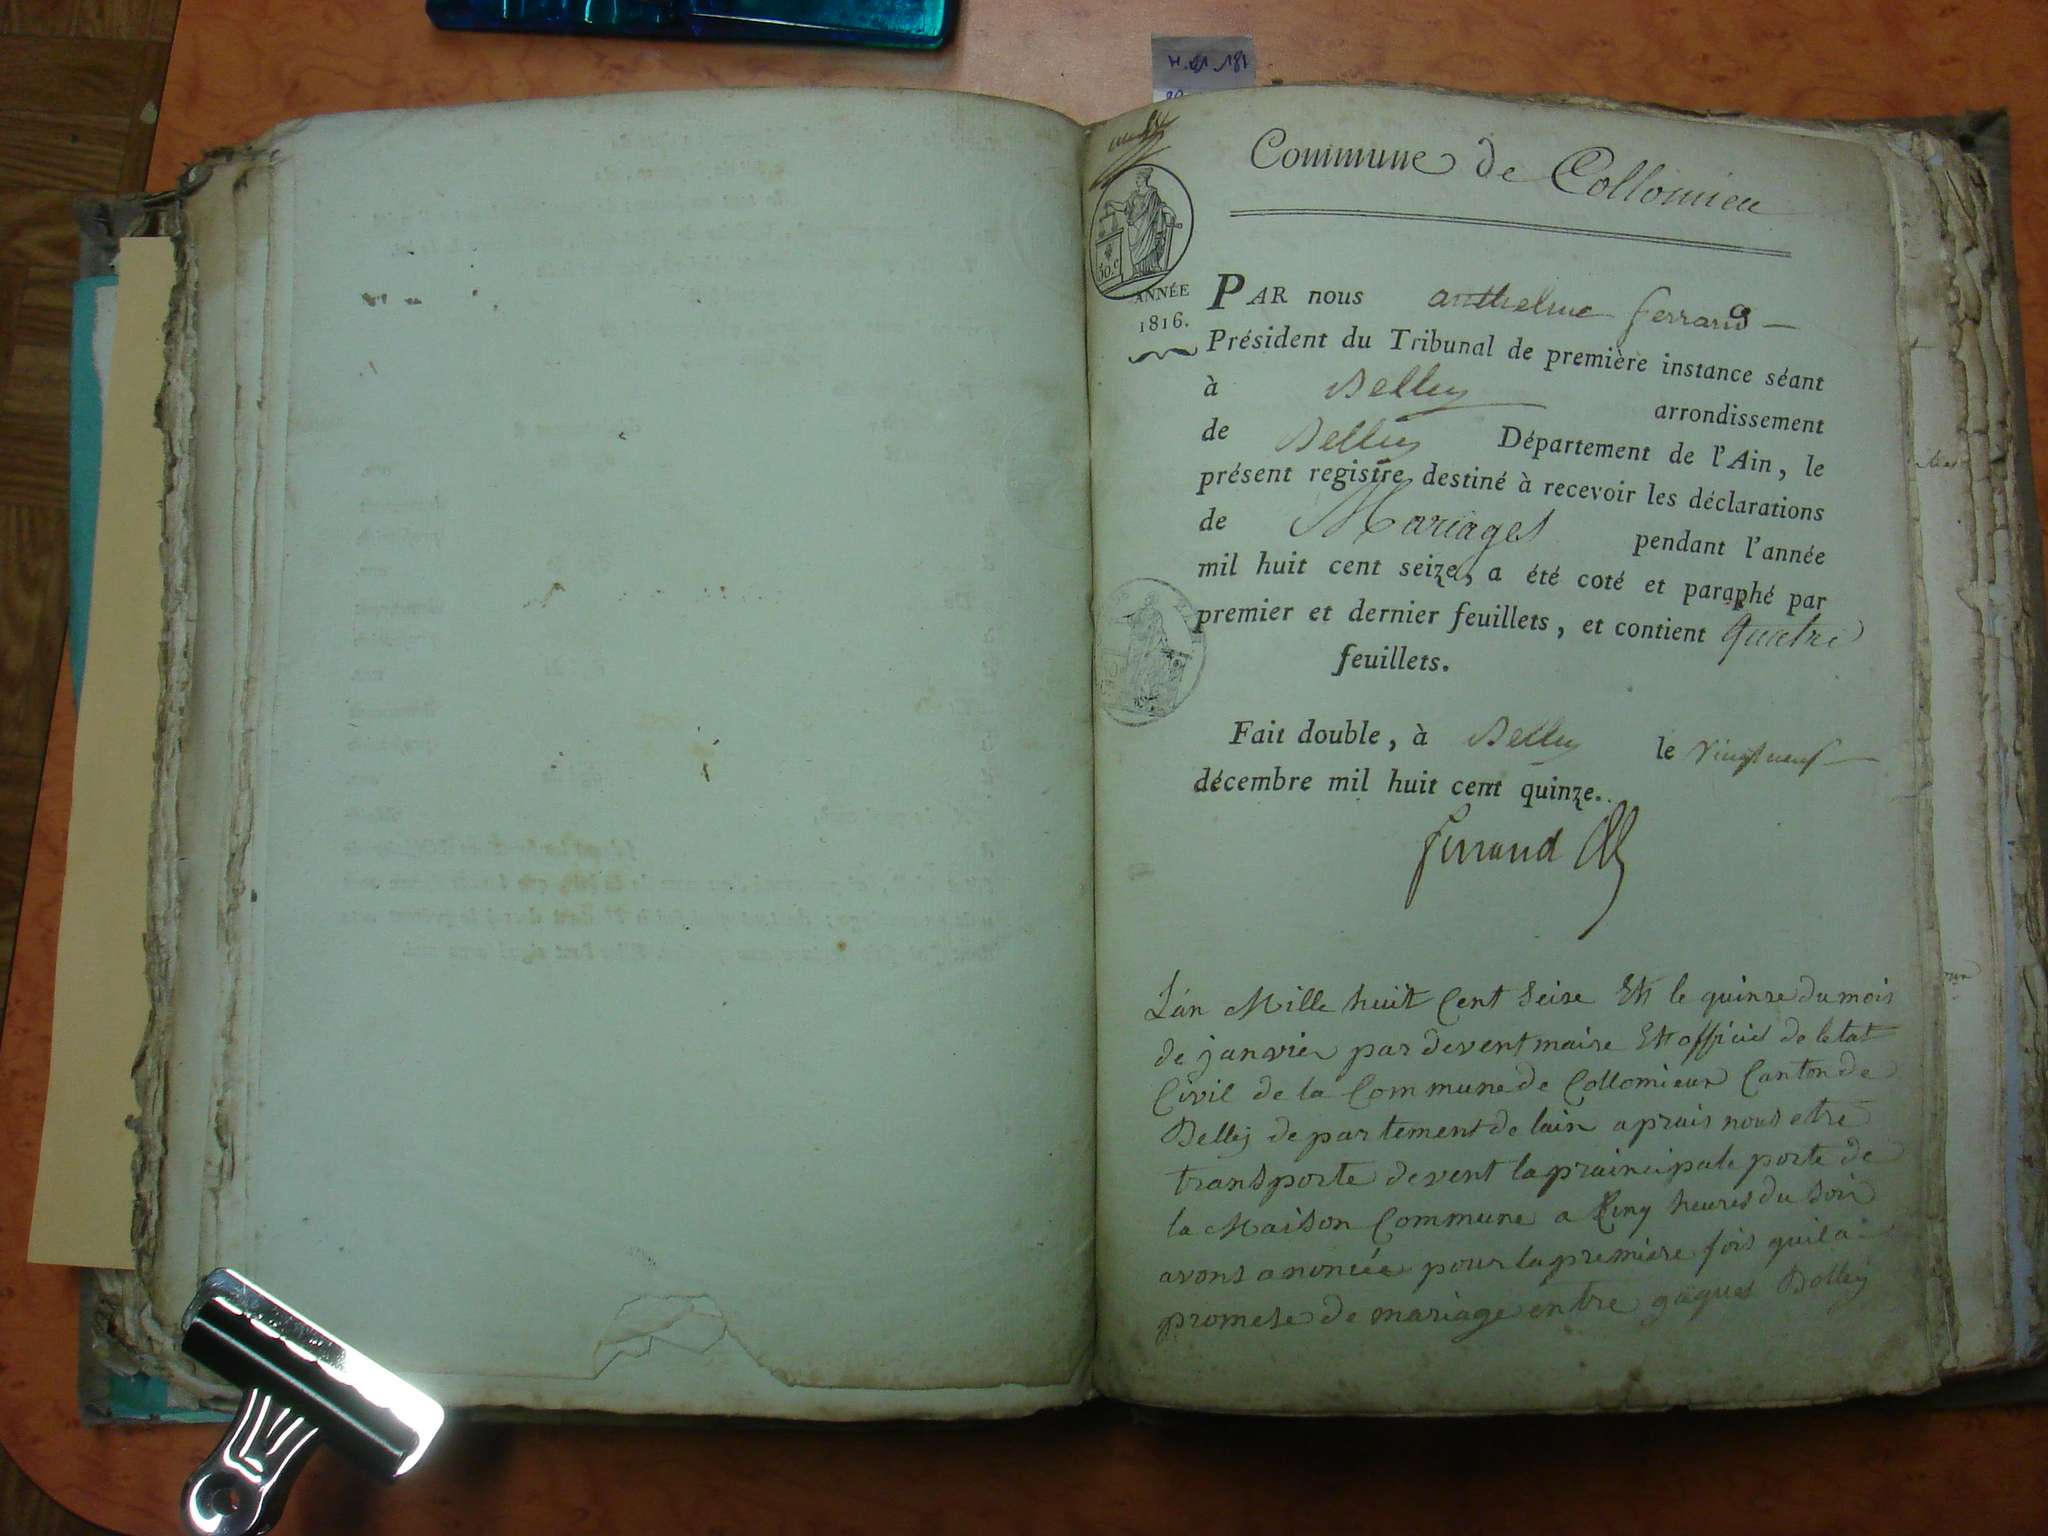 Commune de Collomieu
50.c
ANNÉE
1816.
PAR nous anthelme ferrand
Président du Tribunal de première instance séant
à Belley arrondissement
de Belley Département de l'Ain, le
présent registre destiné à recevoir les déclarations
de Mariages pendant l'année
mil huit cent seize, a été coté et paraphé par
premier et dernier feuillets, et contient quatre
feuillets.
Fait double, à Belley le vingt neuf
décembre mil huit cent quinze.
ferrand
L'an Mille huit Cent Seise Et le quinse du mois
de janvier par devent maire Et officié de letat
Civil de la Commune de Collomieux Canton de
Belley departement de lain aprais nous etre
transporte devent la prainsipale porte de
la Maison Commune a Cinq heures du Soir
avons anoncée pour la premiere fois quil a
promese de mariage entre gaques Bolley